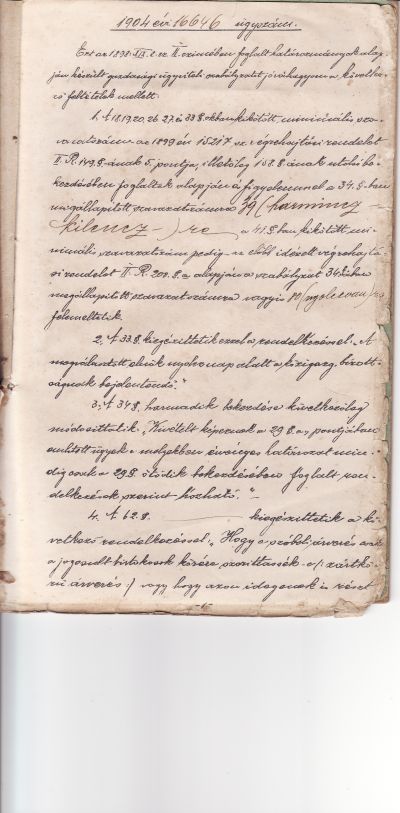 1904 évi 16646 ügyszám.
Ezt az 1898. XIX. t. cz. II. czimében foglalt határozmányok alap-
ján készült gazdasági ügyviteli szabályzatot jóváhagyom a követke-
ző feltételek mellett.
1. A 18. 19. 20. 26. 27. és 33 §. okban kikötött minimális sza-
vazatszám az 1899 évi 15217 sz. végrehajtási rendelet
II. R. 149. §-ának 5. pontja, illetőleg 158. §. ának utolsó be-
kezdésében foglaltak alapján és figyelemmel a 34. §. ban
megállapított szavazatszámra 39 (harmincz-
kilencz-) re a 41. §. ban kikötött mi-
nimális szavazatszám pedig az előbb idézett végrehajtá-
si rendelet II. R. 208. §. a alapján a szabályzat 34. §-ában
megállapított szavazatszámra vagyis 80 (nyolczvan) ra
felemeltetik.
2. A 33. §. kiegészíttetik ezzel a rendelkezéssel: „A
megválasztott elnök nyolcz nap alatt a közigazg. bizott-
ságnak bejelentendő."
3. A 34 §. harmadik bekezdése következőleg
módosíttatik „Kivételt képeznek a 29 §. a, pontjában
említett ügyek a melyekben érvényes határozat min-
dig csak a 29 §. ötödik bekezdésében foglalt ren-
delkezések szerint hozható." -
4. A 62. §. kiegészíttetik a kö-
vetkező rendelkezéssel „Hogy a szóbeli árverés csak
a jogosult birtokosok körére szoríttassék-e /: zártkö-
rü árverés :/ vagy hogy azon idegenek is részt